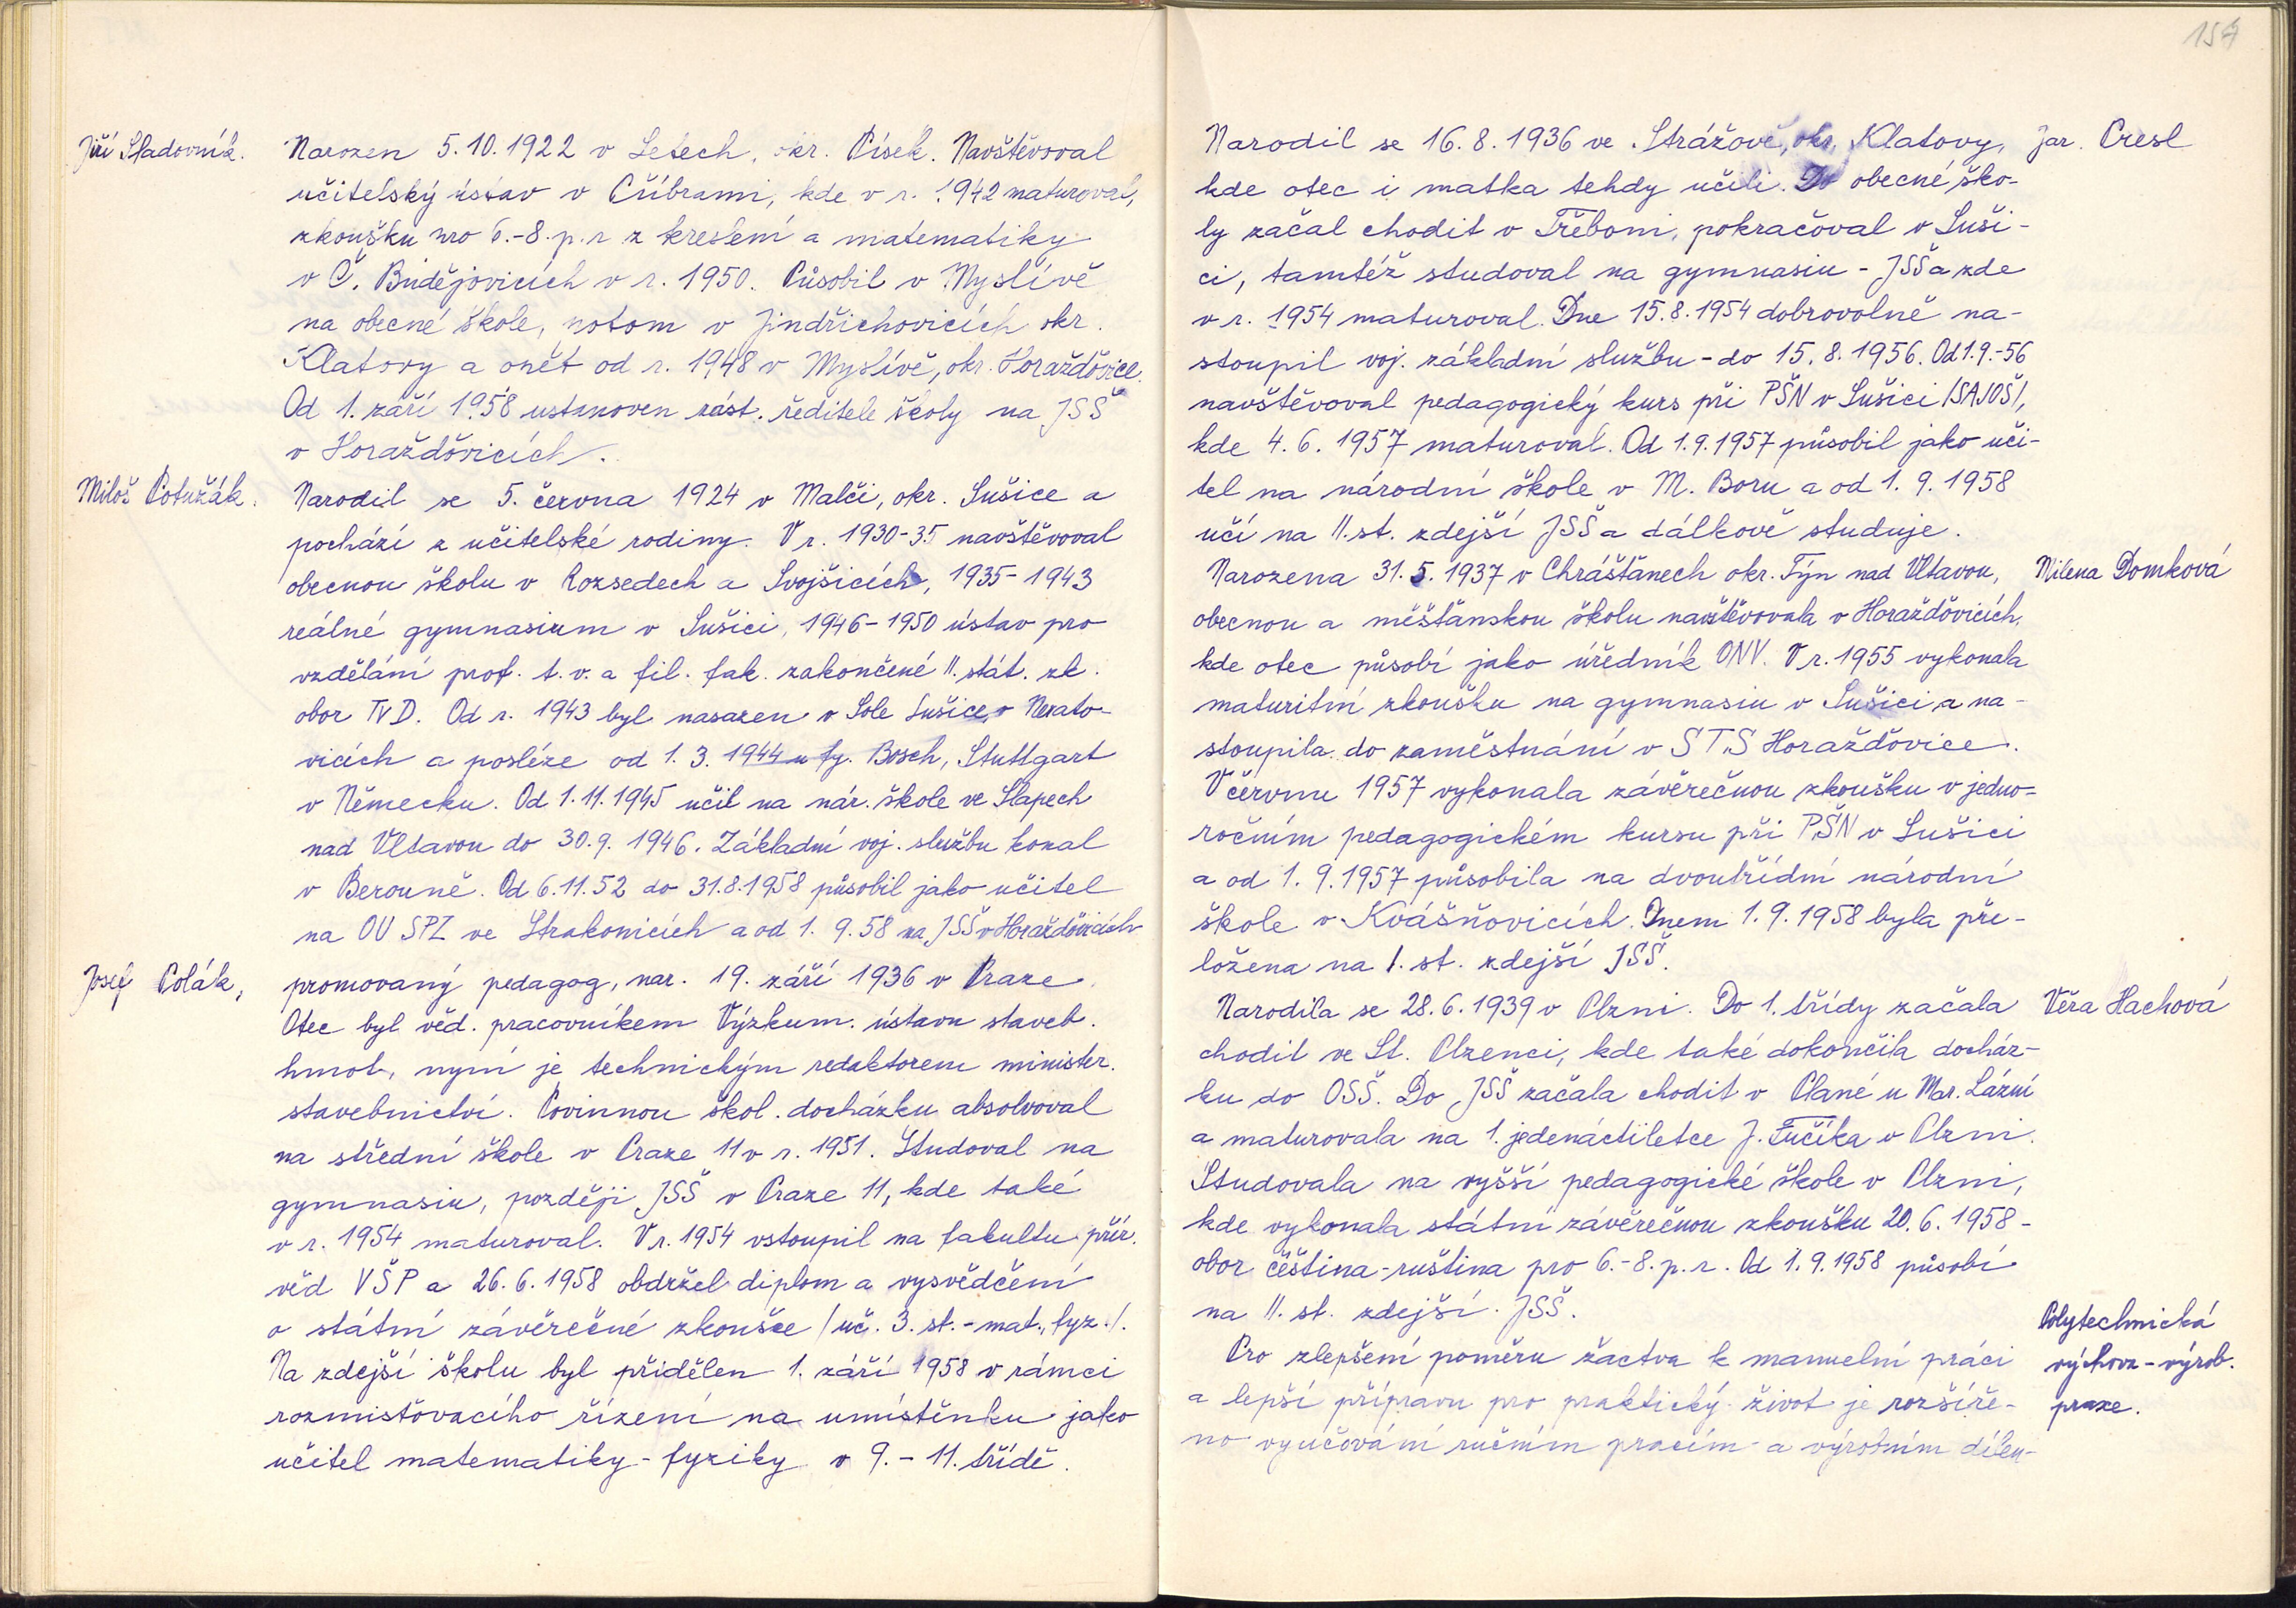 154
Jiří Sladovník.
Narozen 5.10.1922 v Letech, okr. Písek. Navštěvoval
učitelský ústav v Příbrami, kde v r. 1942 maturoval,
zkoušku pro 6.-8. p. r. z kreslení a matematiky
v Č. Budějovicích v r. 1950. Působil v Myslívě
na obecné škole, potom v Jindřichovicích okr.
Klatovy a opět od r. 1948 v Myslívě, okr. Horažďovice.
Od 1. září 1958 ustanoven zást. ředitele školy na JSŠ
v Horažďovicích.
Miloš Potužák.
Narodil se 5. června 1924 v Malči, okr. Sušice a
pochází z učitelské rodiny. V r. 1930-35 navštěvoval
obecnou školu v Rozsedech a Svojšicích, 1935-1943
reálné gymnasium v Sušici, 1946-1950 ústav pro
vzdělání prof. t. v. a fil. fak. zakončené II. stát. zk.
obor Tv D. Od r. 1943 byl nasazen v Sole Sušice, v Nerato-
vicích a posléze od 1. 3. 1944 u fy. Bosch, Stuttgart
v Německu. Od 1.11.1945 učil na nár. škole ve Slapech
nad Vltavou do 30.9. 1946. Základní voj. službu konal
v Berouně. Od 6.11.52 do 31.8.1958 působil jako učitel
na OU SPZ ve Strakonicích a od 1. 9. 58 na JSŠ v Horažďovicích
Josef Polák,
promovaný pedagog, nar. 19. září 1936 v Praze.
Otec byl věd. pracovníkem Výzkum. ústavu staveb.
hmot, nyní je technickým redaktorem minister.
stavebnictví. Povinnou škol. docházku absolvoval
na střední škole v Praze 11 v r. 1951. Studoval na
gymnasiu, později JSŠ v Praze 11, kde také
v r. 1954 maturoval. V r. 1954 vstoupil na fakultu přír.
věd VŠP a 26. 6. 1958 obdržel diplom a vysvědčení
o státní závěrečné zkoušce /uč. 3. st. - mat., fyz./.
Na zdejší školu byl přidělen 1. září 1958 v rámci
rozmisťovacího řízení na umístěnku jako
učitel matematiky - fyziky v 9. - 11. třídě.
Narodil se 16. 8. 1936 ve Strážově, okr. Klatovy,
Jar. Cresl
kde otec i matka tehdy učili. Do obecné ško-
ly začal chodit v Třeboni, pokračoval v Suši-
ci, tamtéž studoval na gymnasiu - JSŠ a zde
v r. 1954 maturoval. Dne 15. 8. 1954 dobrovolně na-
stoupil voj. základní službu - do 15. 8. 1956. Od 1.9.-56
navštěvoval pedagogický kurs při PŠN v Sušici /SAJOŠ/,
kde 4. 6. 1957 maturoval. Od 1.9.1957 působil jako uči-
tel na národní škole v M. Boru a od 1. 9. 1958
učí na II. st. zdejší JSŠ a dálkově studuje.
Narozena 31. 5. 1937 v Chrášťanech okr. Týn nad Vltavou,
Milena Domková
obecnou a měšťanskou školu navštěvovala v Horažďovicích,
kde otec působí jako úředník ONV. V r. 1955 vykonala
maturitní zkoušku na gymnasiu v Sušici a na-
stoupila do zaměstnání v STS Horažďovice.
V červnu 1957 vykonala závěrečnou zkoušku v jedno-
ročním pedagogickém kursu při PŠN v Sušici
a od 1. 9. 1957 působila na dvoutřídní národní
škole v Kvášňovicích. Dnem 1. 9. 1958 byla pře-
ložena na I. st. zdejší JSŠ.
Narodila se 28. 6. 1939 v Plzni. Do 1. třídy začala
Věra Hachová
chodit ve St. Plzenci, kde také dokončila docház-
ku do OSŠ. Do JSŠ začala chodit v Plané u Mar. Lázní
a maturovala na 1. jedenáctiletce J. Fučíka v Plzni.
Studovala na vyšší pedagogické škole v Plzni,
kde vykonala státní závěrečnou zkoušku 20. 6. 1958 -
obor čeština-ruština pro 6.-8. p. r. Od 1. 9. 1958 působí
na II. st. zdejší JSŠ.
Polytechnická
výchova - výrob.
praxe.
Pro zlepšení poměru žactva k manuelní práci
a lepší přípravu pro praktický život je rozšíře-
no vyučování ručním pracím a výrobním dílen-